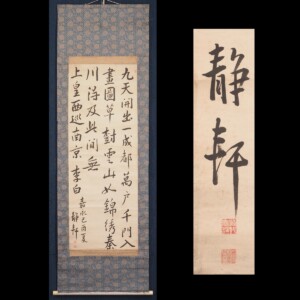 九天開出一成都萬户千門入
畫圖草樹雲山如錦繡秦
川得及此間無
上皇西巡南京 李白
嘉永己酉夏
静軒
静軒